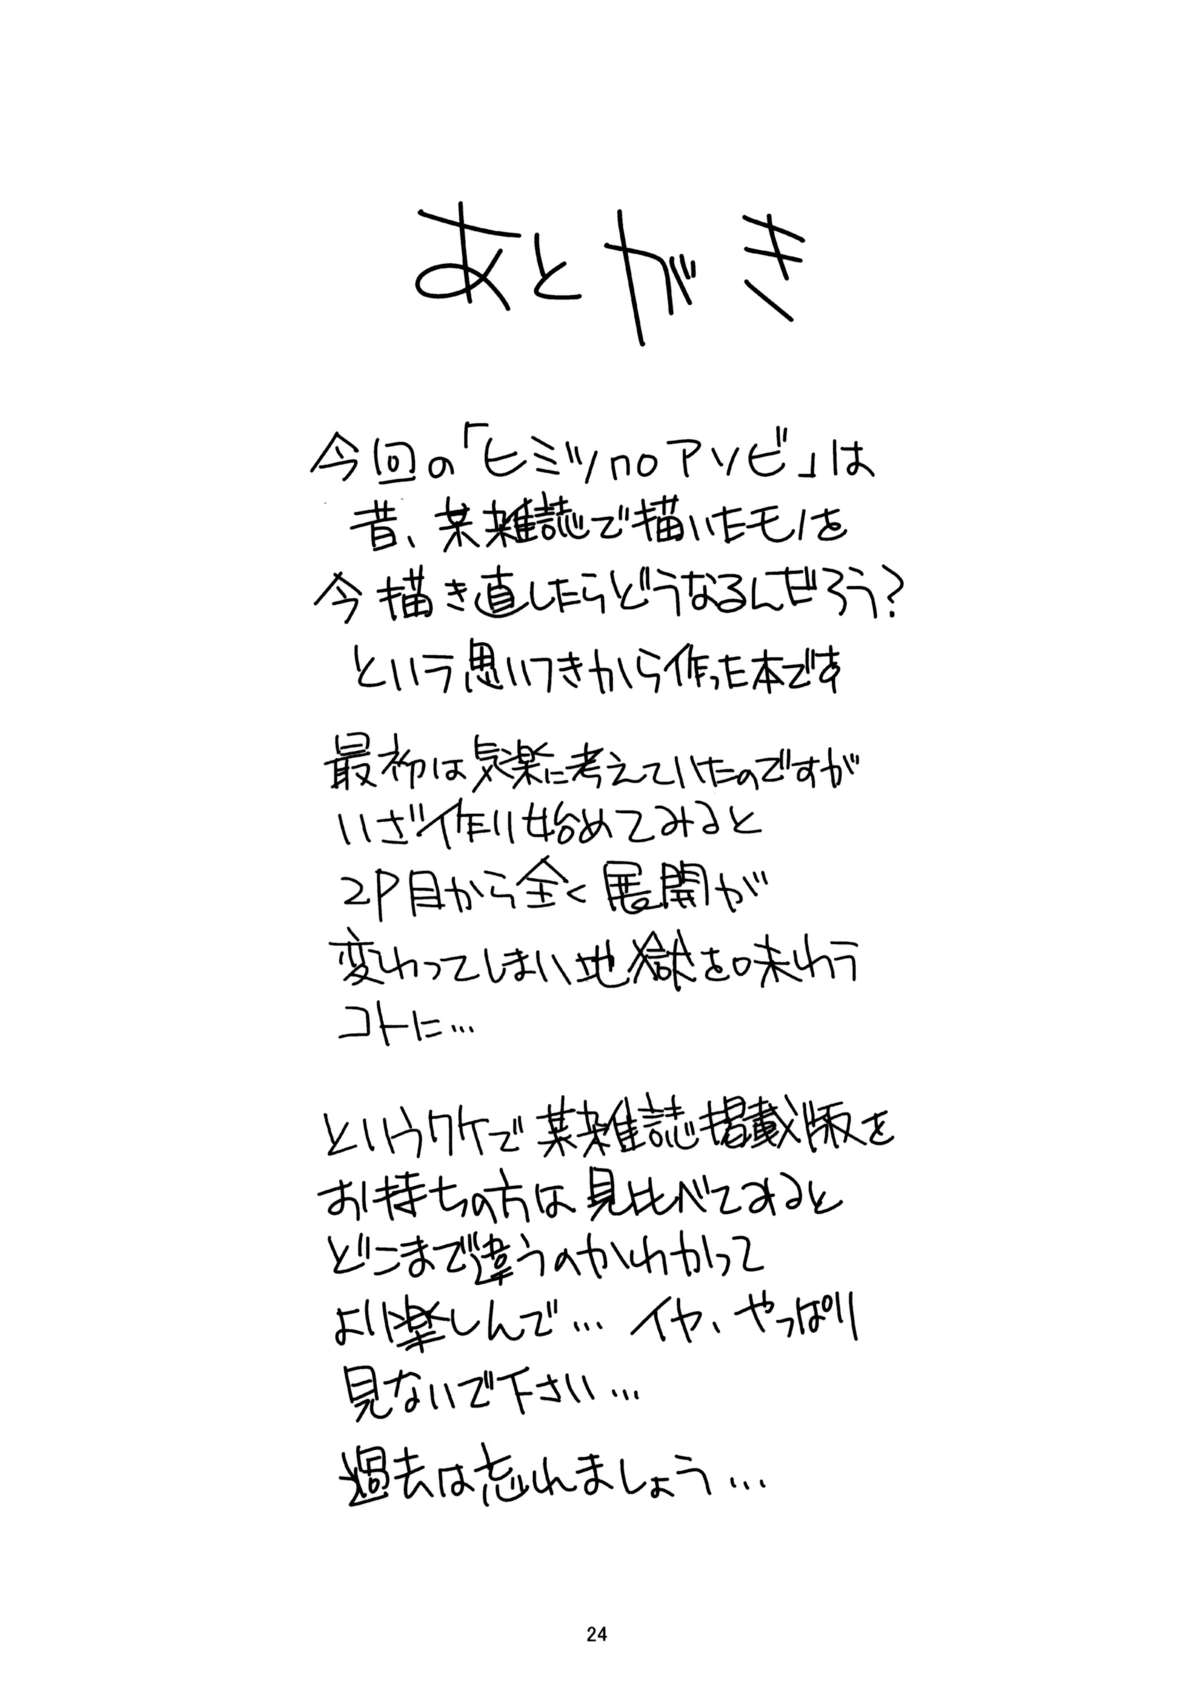 あとがき
今回の「ヒミツnoアソビ」は
昔、某雑誌で描いたモノを
今描き直したらどうなるんだろう?
という思いつきから作った本です
最初は気楽に考えていたのですが
いざ作り始めてみると
2P目から全く展開が
変わってしまい地獄を味わう
コトに…
というワケで某雑誌掲載版を
お持ちの方は見比べてみると
どこまで違うのかわかって
より楽しんで… イヤ、やっぱり
見ないで下さい…
過去は忘れましょう…
24